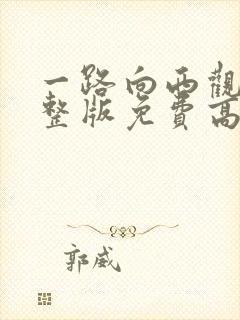 一路向西觀
整版免費高
郭威